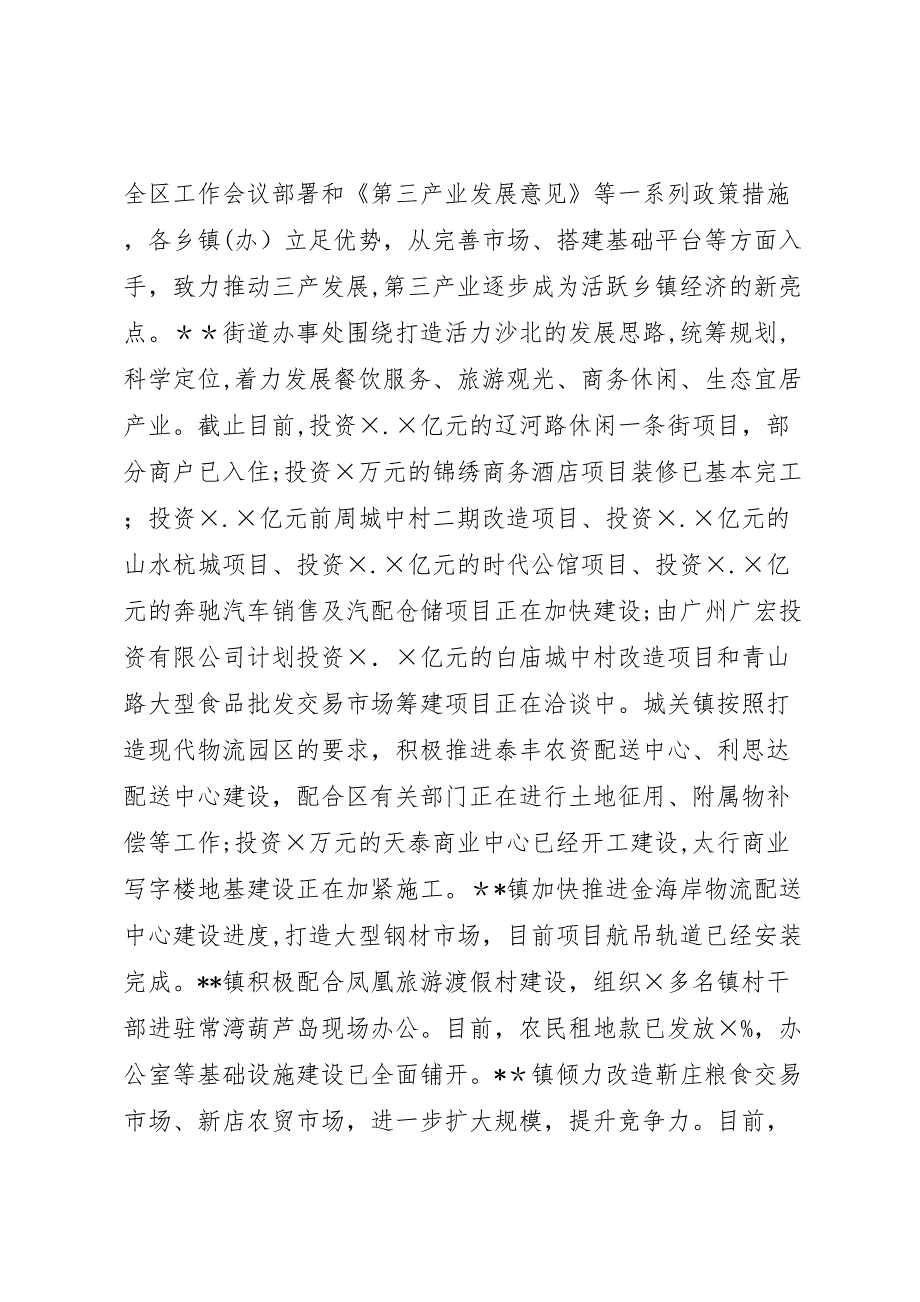 全区工作会议部署和《第三产业发展意见》等一系列政策措施
，各乡镇(办）立足优势，从完善市场、搭建基础平台等方面入
手，致力推动三产发展,第三产业逐步成为活跃乡镇经济的新亮
点。＊＊街道办事处围绕打造活力沙北的发展思路,统筹规划,
科学定位,着力发展餐饮服务、旅游观光、商务休闲、生态宜居
产业。截止目前,投资×.×亿元的辽河路休闲一条街项目，部
分商户已入住;投资×万元的锦绣商务酒店项目装修已基本完工
；投资×.×亿元前周城中村二期改造项目、投资×.×亿元的
山水杭城项目、投资×.×亿元的时代公馆项目、投资×.×亿
元的奔驰汽车销售及汽配仓储项目正在加快建设;由广州广宏投
资有限公司计划投资×．×亿元的白庙城中村改造项目和青山
路大型食品批发交易市场筹建项目正在洽谈中。城关镇按照打
造现代物流园区的要求，积极推进泰丰农资配送中心、利思达
配送中心建设，配合区有关部门正在进行土地征用、附属物补
偿等工作;投资×万元的天泰商业中心已经开工建设,太行商业
写字楼地基建设正在加紧施工。＊*镇加快推进金海岸物流配送
中心建设进度,打造大型钢材市场，目前项目航吊轨道已经安装
完成。**镇积极配合凤凰旅游渡假村建设，组织×多名镇村干
部进驻常湾葫芦岛现场办公。目前，农民租地款已发放×%，办
公室等基础设施建设已全面铺开。*＊镇倾力改造靳庄粮食交易
市场、新店农贸市场，进一步扩大规模，提升竞争力。目前，